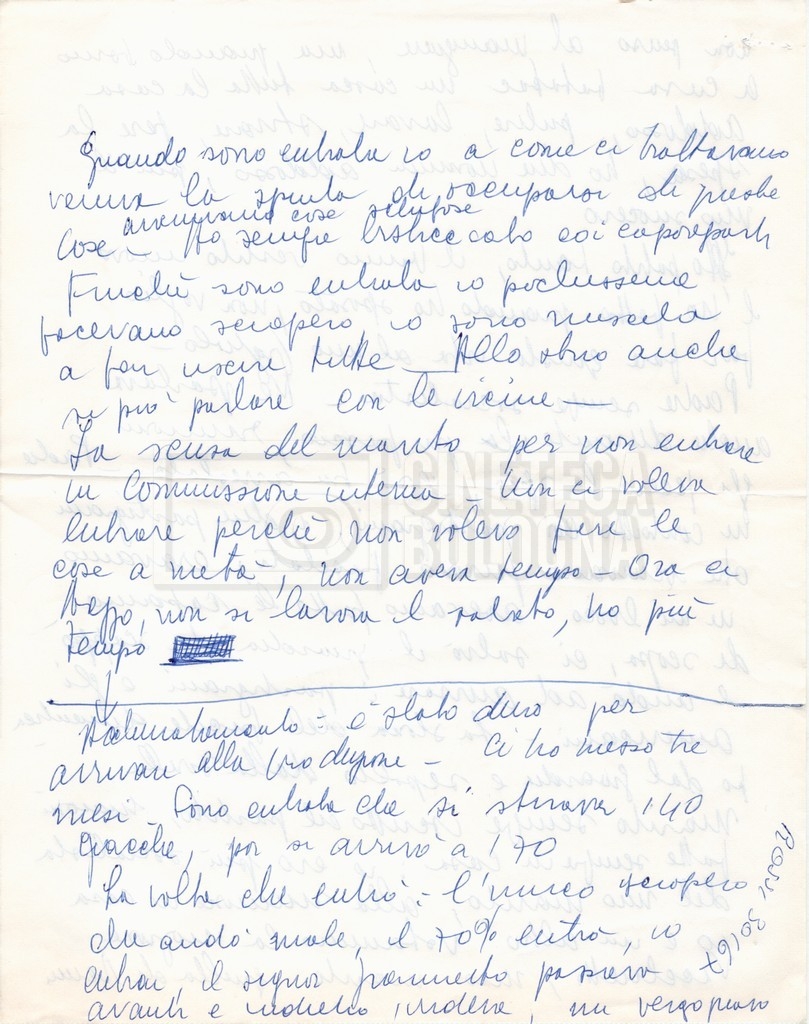 Quando sono entrata io a come ci trattavano
veniva la spinta di occuparsi di queste
arrivavano cose schifose
cose – Ho sempre bisticciato coi capireparti
Finché sono entrata io
facevano sciopero io sono riuscita
a far uscire tutte – Allo stiro anche
si può parlare con le vicine –
La scusa del marito per non entrare
in Commissione interna – Non ci voleva
entrare perché non voleva fare le
cose a metà, non aveva tempo – Ora ci
, non si lavora il sabato, ho più
tempo
– è stato duro per
arrivare alla produzione – Ci ho messo tre
mesi – Sono entrata che si stirava 140
giacche, poi si arrivò a 170
La volta che entrò – l'unico sciopero
che andò male, il 70% entrò, io
entrai, il signor passava
avanti e indietro, rideva, mi vergognavo
Rossi 30167
CINETECA
BOLOGNA